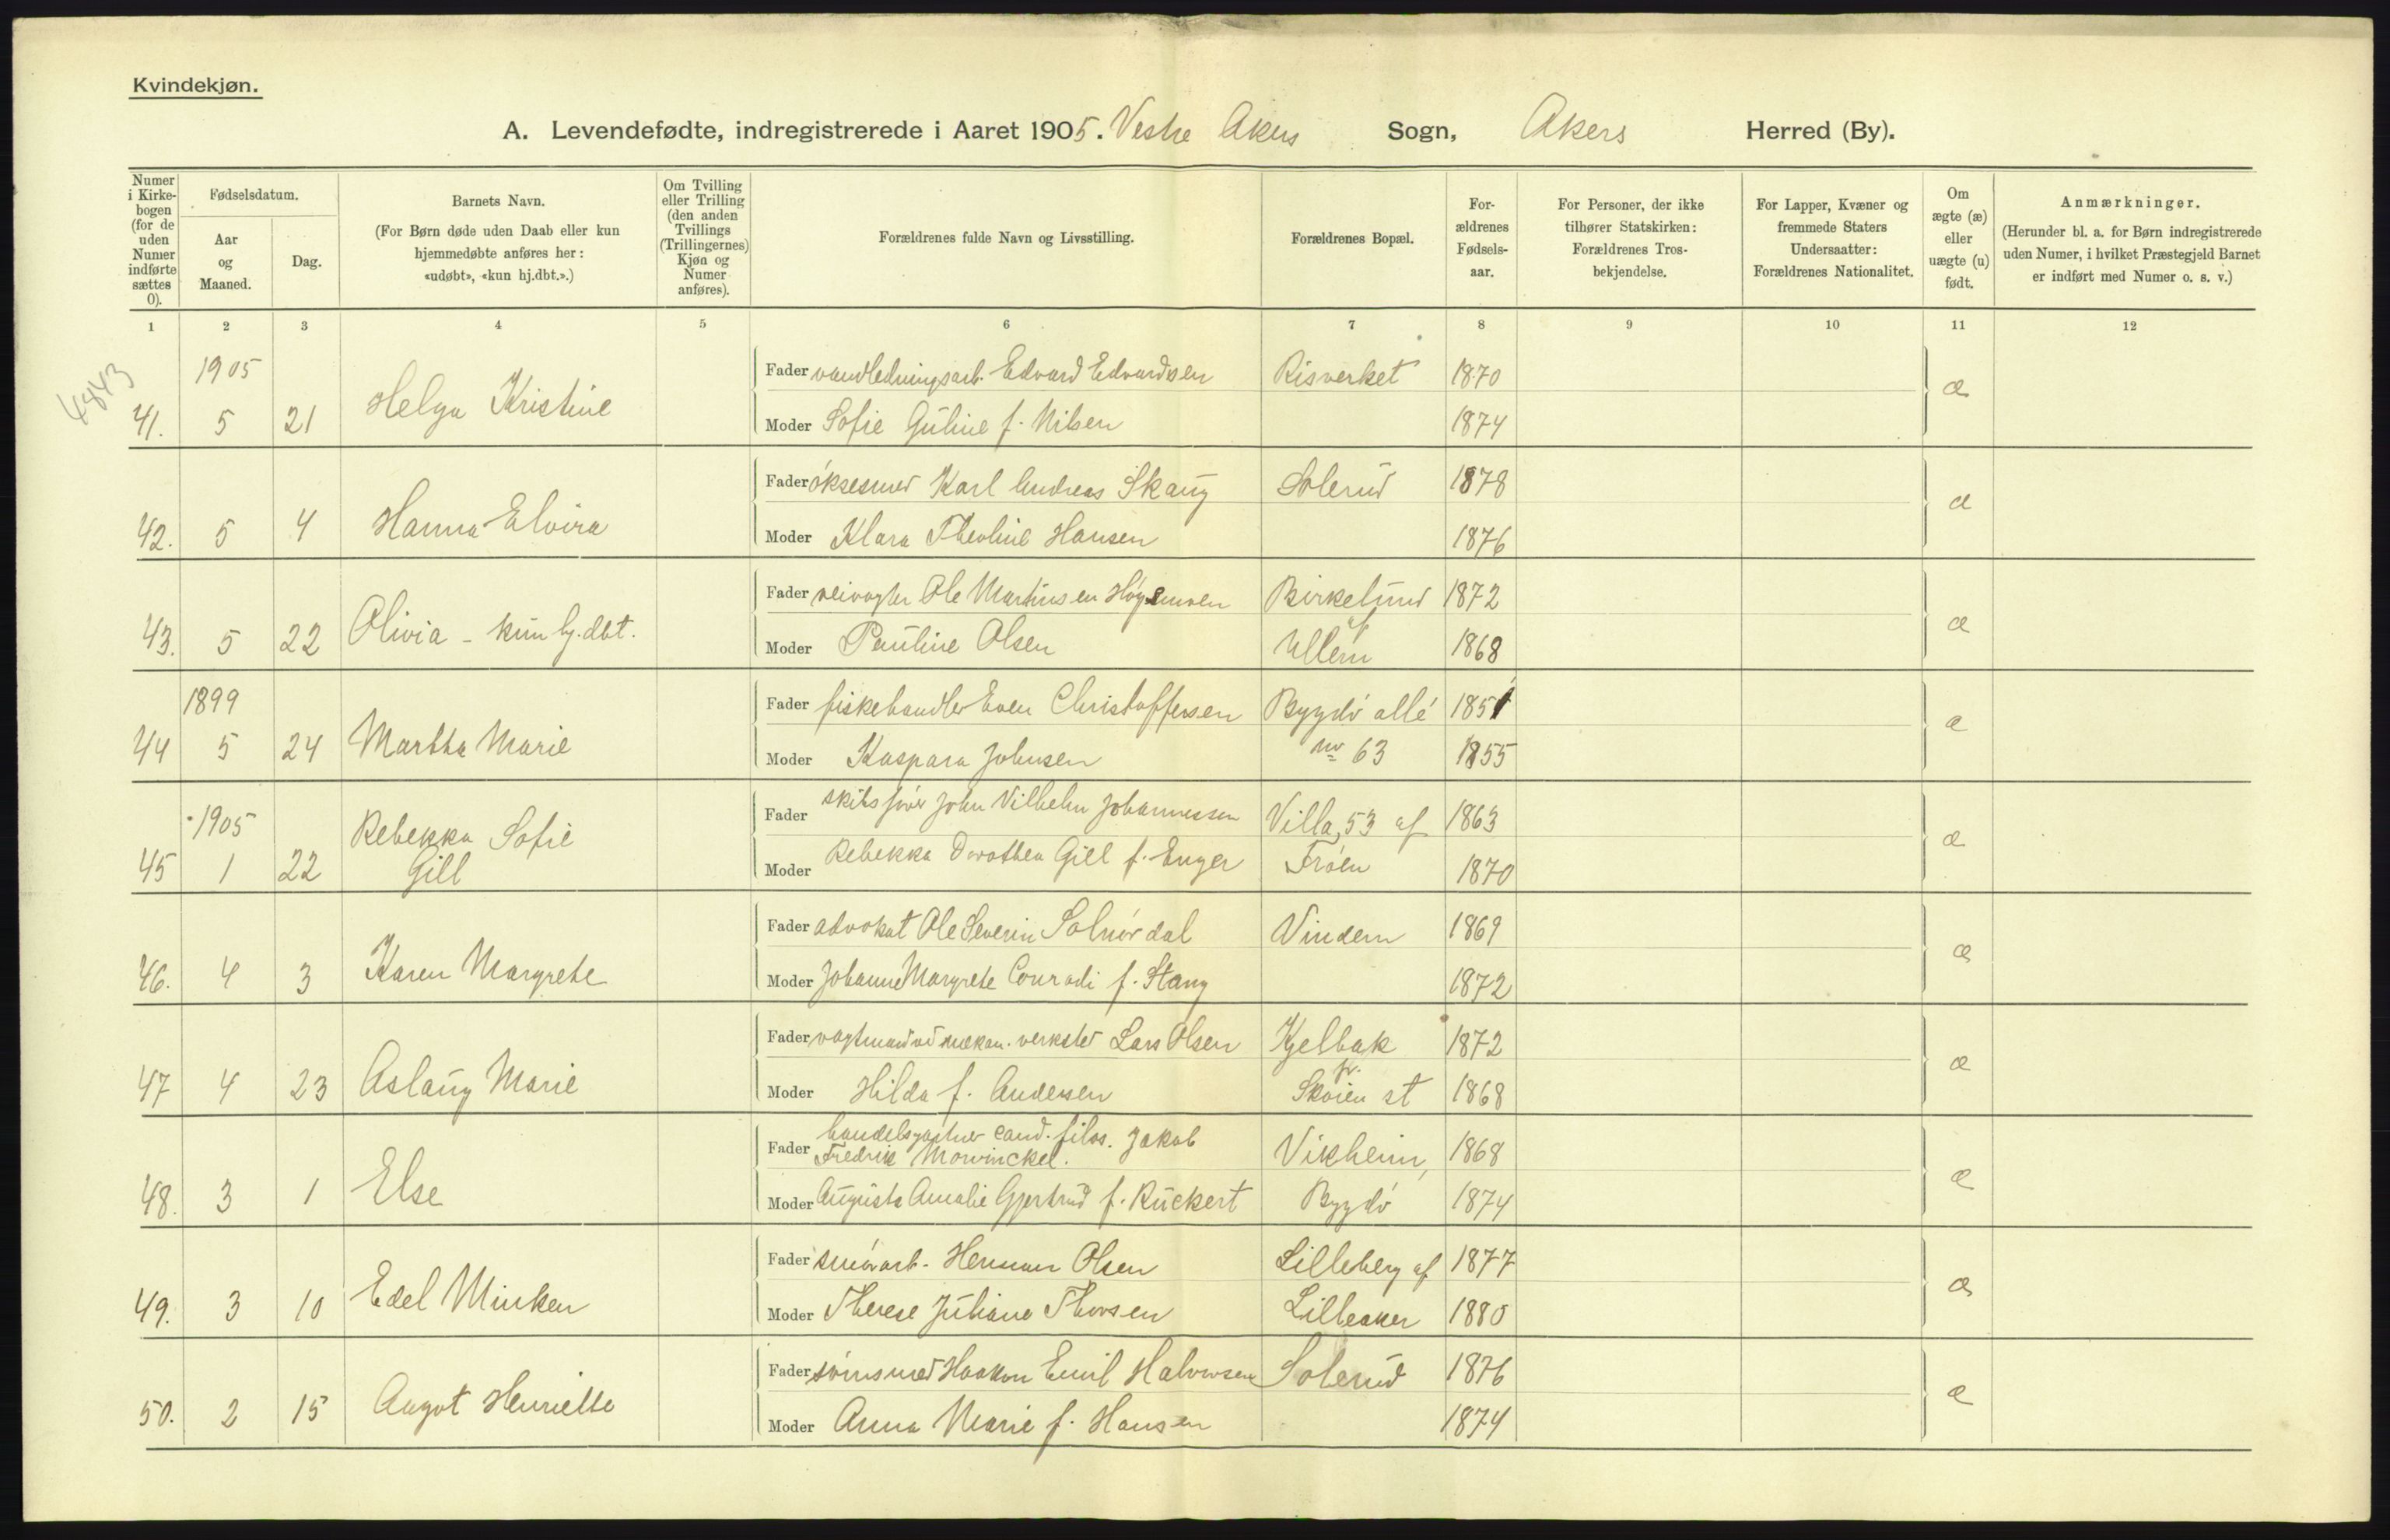 Kvindekjøn.
A. Levendefødte, indregistrerede i Aaret 1905. Vestre Akers Sogn, Akers Herred (By).
Numer i Kirkebogen (for de uden Numer indførte sættes 0).
Fødselsdatum.
Aar og Maaned.
Dag.
Barnets Navn.
(For Børn døde uden Daab eller kun hjemmedøbte anføres her: «udøbt», «kun hj.dbt.».)
Om Tvilling eller Trilling (den anden Tvillings (Trillingernes) Kjøn og Numer anføres).
Forældrenes fulde Navn og Livsstilling.
Forældrenes Bopæl.
For-ældrenes Fødsels-aar.
For Personer, der ikke tilhører Statskirken: Forældrenes Tros-bekjendelse.
For Lapper, Kvæner og fremmede Staters Undersaatter: Forældrenes Nationalitet.
Om ægte (æ) eller uægte (u) født.
Anmærkninger.
(Herunder bl. a. for Børn indregistrerede uden Numer, i hvilket Præstegjeld Barnet er indført med Numer o. s. v.)
1 2 3 4 5 6 7 8 9 10 11 12
4843
1905 Fader vandledningsarb. Edvard Edvardsen Risverket 1870 æ
41. 5 21 Helga Kristine Moder Sofie Guline f. Nilsen 1874
Fader øksesmed Karl Andreas Skaug Solerud 1878 æ
42. 5 4 Hanna Elvira Moder Klara Theoline Hansen 1876
Fader veivogter Ole Martinsen Birkelund 1872 æ
43. 5 22 Olivia - kun hj.dbt. Moder Pauline Olsen af Ullern 1868
1899 Fader fiskehandler Even Christoffersen Bygdø allé 1851 æ
44 5 24 Martha Marie Moder Kaspara Johnsen no 63 1855
1905 Rebekka Sofie Fader skibsfører John Vilhelm Johannessen Villa 53 af 1863 æ
45 1 22 Gill Moder Rebekka Dorothea Gill f. Enger Frøen 1870
Fader advokat Ole Severin Solnørdal Vindern 1869 æ
46. 4 3 Karen Margrete Moder Johanne Margrete Conradi f. Stang 1872
Fader vagtmand ved mekan. verksted Lars Olsen Kjelbak 1872 æ
47 4 23 Aslaug Marie Moder Hilda f. Andersen pr. Skøien st 1868
Fader handelsgartner cand. filos. Jakob
Fredrik Mowinckel. Vikheim, 1868 æ
48. 3 1 Else Moder Augusta Amalie Gjertrud f. Rückert Bygdø 1874
Fader smørarb. Herman Olsen Lilleberg af 1877 æ
49. 3 10 Edel Minken Moder Therese Juliane Thorsen Lilleaker 1880
Fader sømsmed Haakon Emil Halvorsen Solerud 1876 æ
50. 2 15 Aagot Henriette Moder Anna Marie f. Hansen 1874